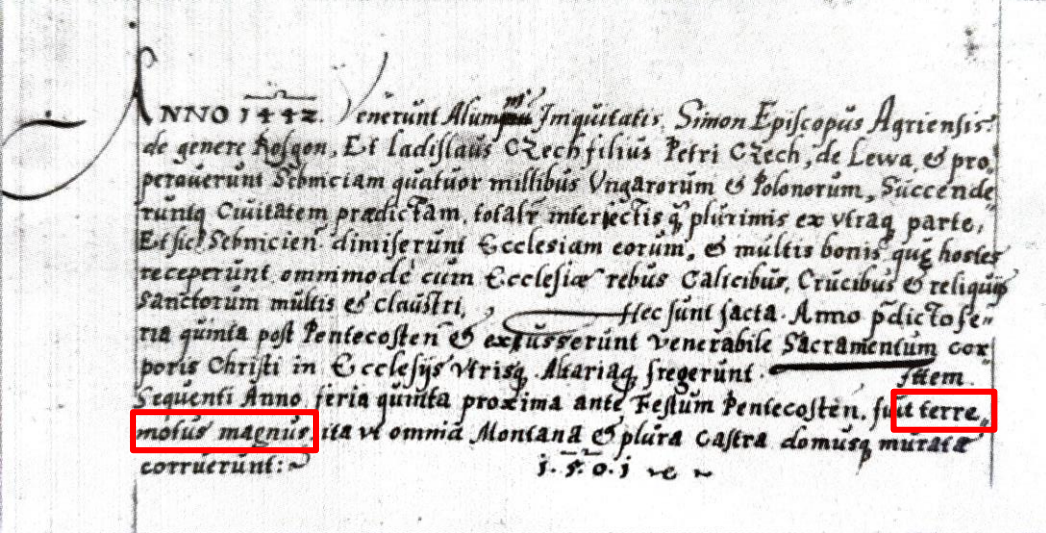 ANNO 1442. Venerunt Alumni Iniquitatis, Simon Episcopus Agriensis:
de genere Rosgon, Et ladislaus Czech filius Petri Czech, de Lewa, & pro
perauerunt Sebniciam quatuor millibus Vngarorum & Polonorum, Succende„
runtq Ciuitatem prædictam, totalr interjectis q plurimis ex vtraq parte,
Et sic Sebnicien dimiserunt Ecclesiam eorum, & multis bonis quę hostes
receperunt ommimode cum Ecclesiæ rebus Calicibus, Crucibus & reliquijs
Sanctorum multis & claustri, Hec sunt facta Anno pdicto fe„
ria quinta post Pentecosten & excusserunt venerabile Sacramentum cor
poris Christi in Ecclesijs vtrisq Altariaq fregerunt. Ittem
Sequenti Anno, feria quinta proxima ante Festum Pentecosten, fuit terre„
motus magnus, ita vt omnia Montana & plura Castra domusq muratæ
corruerunt:
1.5.0.1